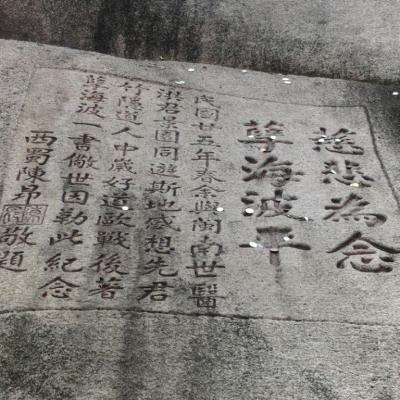 慈悲為念
孽海波平
民國廿五年春余與閩南世醫
洪君景園同遊斯地感想先君
竹隱道人中歲好道歐戰後著
孽海波一書儆世因勒此紀念
西蜀陳昂敬題